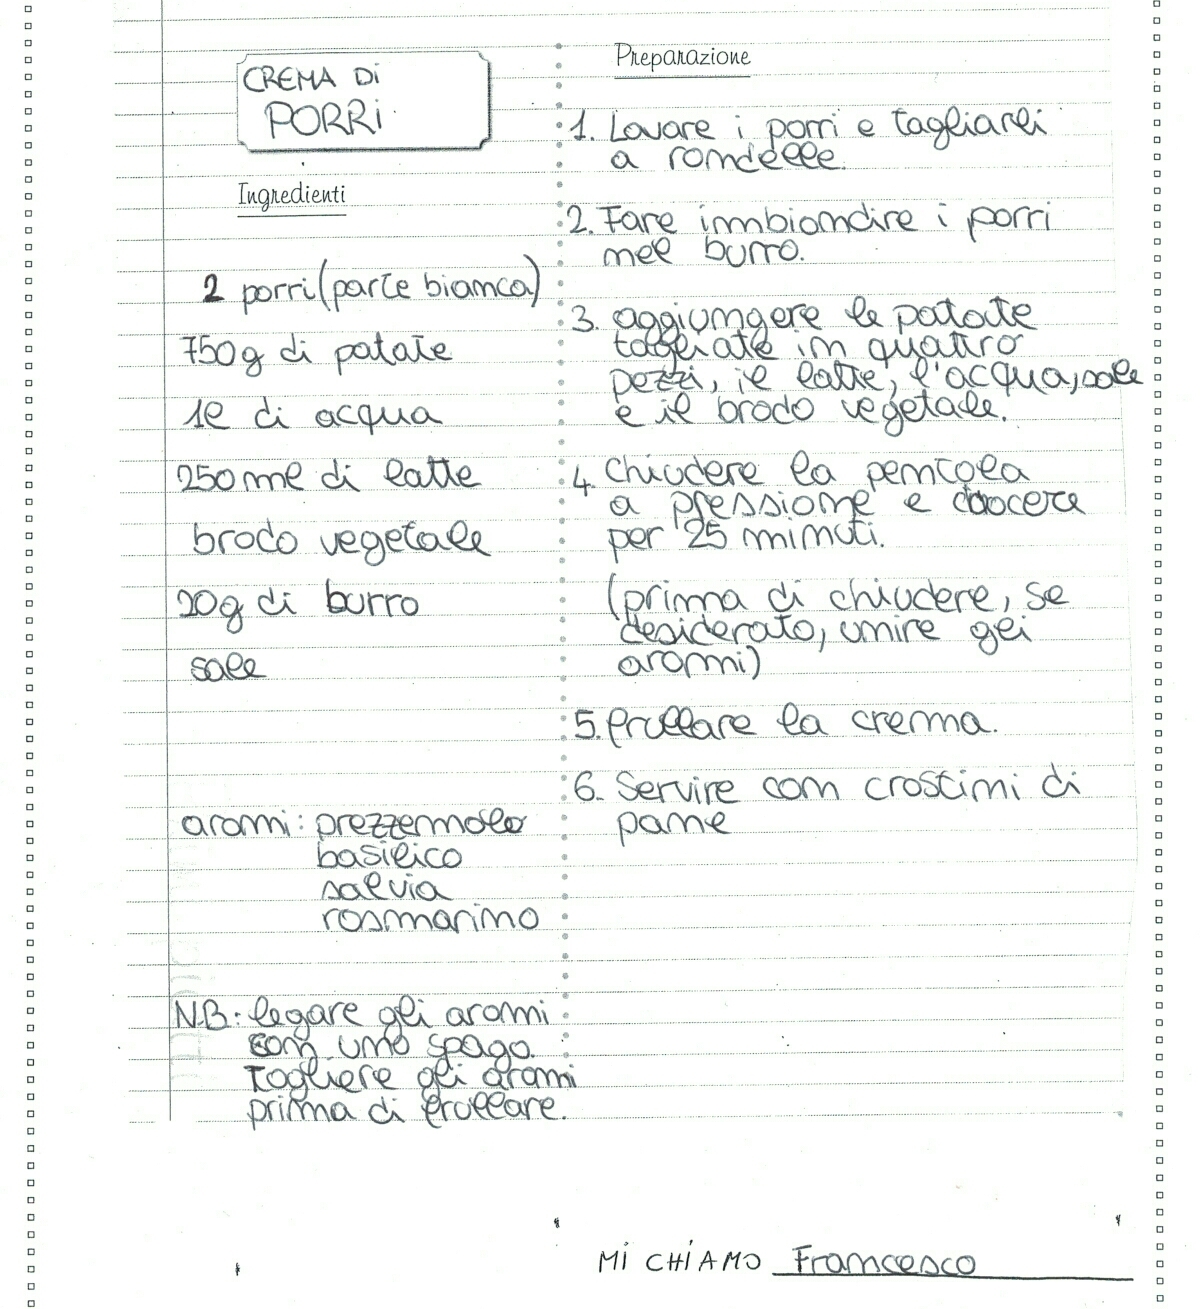 CREMA DI
PORRI
Ingredienti
2 porri (parte bianca)
750g di patate
1l di acqua
250 ml di latte
brodo vegetale
20g di burro
sale
aromi: prezzemolo
basilico
salvia
rosmarino
N.B.: legare gli aromi
con uno spago.
Togliere gli aromi
prima di frullare.
Preparazione
1. Lavare i porri e tagliarli
a rondelle.
2. Fare imbiondire i porri
nel burro.
3. aggiungere le patate
tagliate in quattro
pezzi, il latte, l'acqua, sale
e il brodo vegetale.
4. Chiudere la pentola
a pressione e cuocere
per 25 minuti.
(prima di chiudere, se
desiderato, unire gli
aromi)
5. frullare la crema.
6. Servire con crostini di
pane
MI CHIAMO Francesco